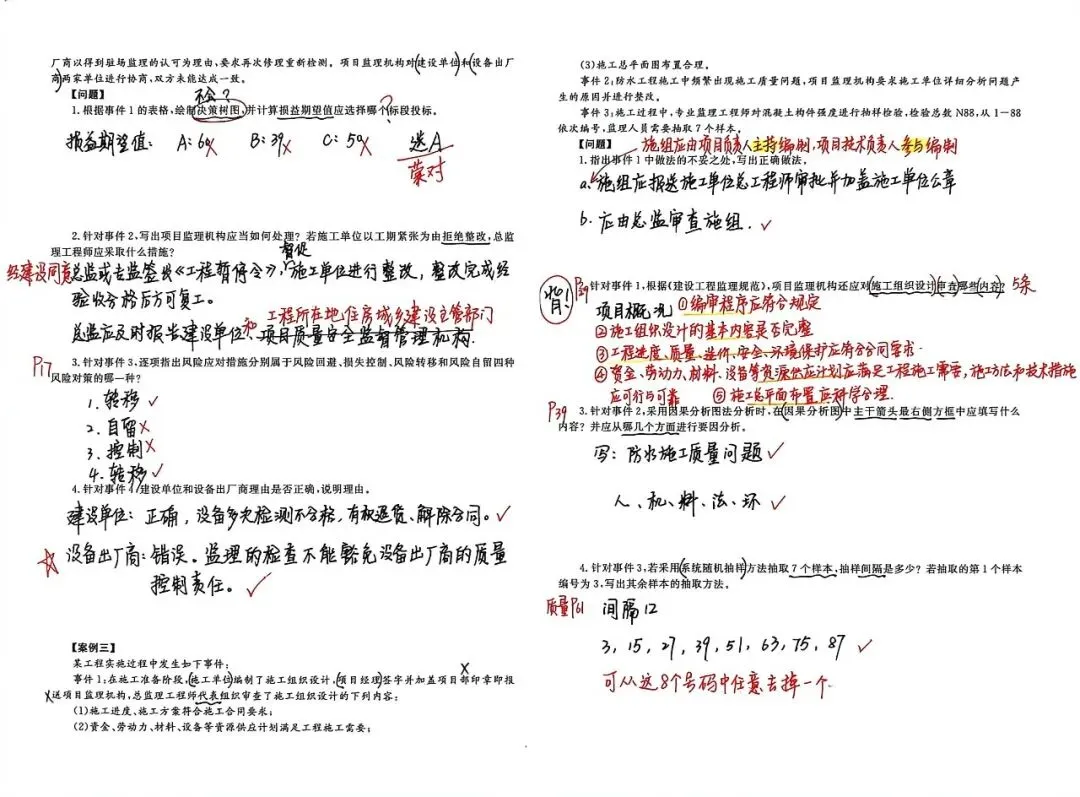 厂商以得到驻场监理的认可为理由,要求再次修理重新检测。项目监理机构对建设单位和设备出厂
商两家单位进行协商,双方未能达成一致。
【问题】
不会?
1.根据事件1的表格,绘制决策树图,并计算损益期望值应选择哪个标段投标。
?
损益期望值: A:60× B:39× C:50× 选A
菜对
2.针对事件2,写出项目监理机构应当如何处理?若施工单位以工期紧张为由拒绝整改,总监
理工程师应采取什么措施?
督促
经建设同意 总监或去监签发《工程暂停令》,施工单位进行整改,整改完成经
验收合格后方可复工。
和工程所在地住房城乡建设主管部门
总监应及时报告建设单位、项目质量安全监督管理机构.
P17 3.针对事件3,逐项指出风险应对措施分别属于风险回避、损失控制、风险转移和风险自留四种
风险对策的哪一种?
1.转移 ✓
2.自留×
3.控制×
4.转移✓
4.针对事件4,建设单位和设备出厂商理由是否正确,说明理由。
建设单位:正确,设备多次检测不合格,有权退货、解除合同。✓
☆ 设备出厂商:错误。监理的检查不能豁免设备出厂商的质量
控制责任。✓
【案例三】
某工程实施过程中发生如下事件:
×
事件1:在施工准备阶段,施工单位编制了施工组织设计,项目经理签字并加盖项目部印章即报
×送项目监理机构,总监理工程师代表组织审查了施工组织设计的下列内容:
(1)施工进度、施工方案符合施工合同要求;
(2)资金、劳动力、材料、设备等资源供应计划满足工程施工需要;
(3)施工总平面图布置合理。
事件2:防水工程施工中频繁出现施工质量问题,项目监理机构要求施工单位详细分析问题产
生的原因并进行整改。
事件3:施工过程中,专业监理工程师对混凝土构件强度进行抽样检验,检验总数N88,从1—88
依次编号,监理人员需要抽取7个样本。
【问题】 施组应由项目负责人主持编制,项目技术负责人参与编制
1.指出事件1中做法的不妥之处,写出正确做法。
a.施组应报送施工单位总工程师审批并加盖施工单位公章
b.应由总监审查施组.✓
背! P29 针对事件1,根据《建设工程监理规范》,项目监理机构还应对施工组织设计审查哪些内容? 5条
项目概况 ①编审程序应符合规定
②施工组织设计的基本内容是否完整
③工程进度、质量、造价、安全、环境保护应符合合同要求.
④资金、劳动力、材料、设备等资源供应计划应满足工程施工需要,施工方法和技术措施
应可行与可靠 ⑤施工总平面布置应科学合理.
P39 3.针对事件2,采用因果分析图法分析时,在因果分析图中主干箭头最右侧方框中应填写什么
内容?并应从哪几个方面进行要因分析。
写:防水施工质量问题✓
人、机、料、法、环 ✓
4.针对事件3,若采用系统随机抽样方法抽取7个样本,抽样间隔是多少?若抽取的第1个样本
编号为3,写出其余样本的抽取方法。
质量P61 间隔12
3,15,27,39,51,63,75,87 ✓
可从这8个号码中任意去掉一个